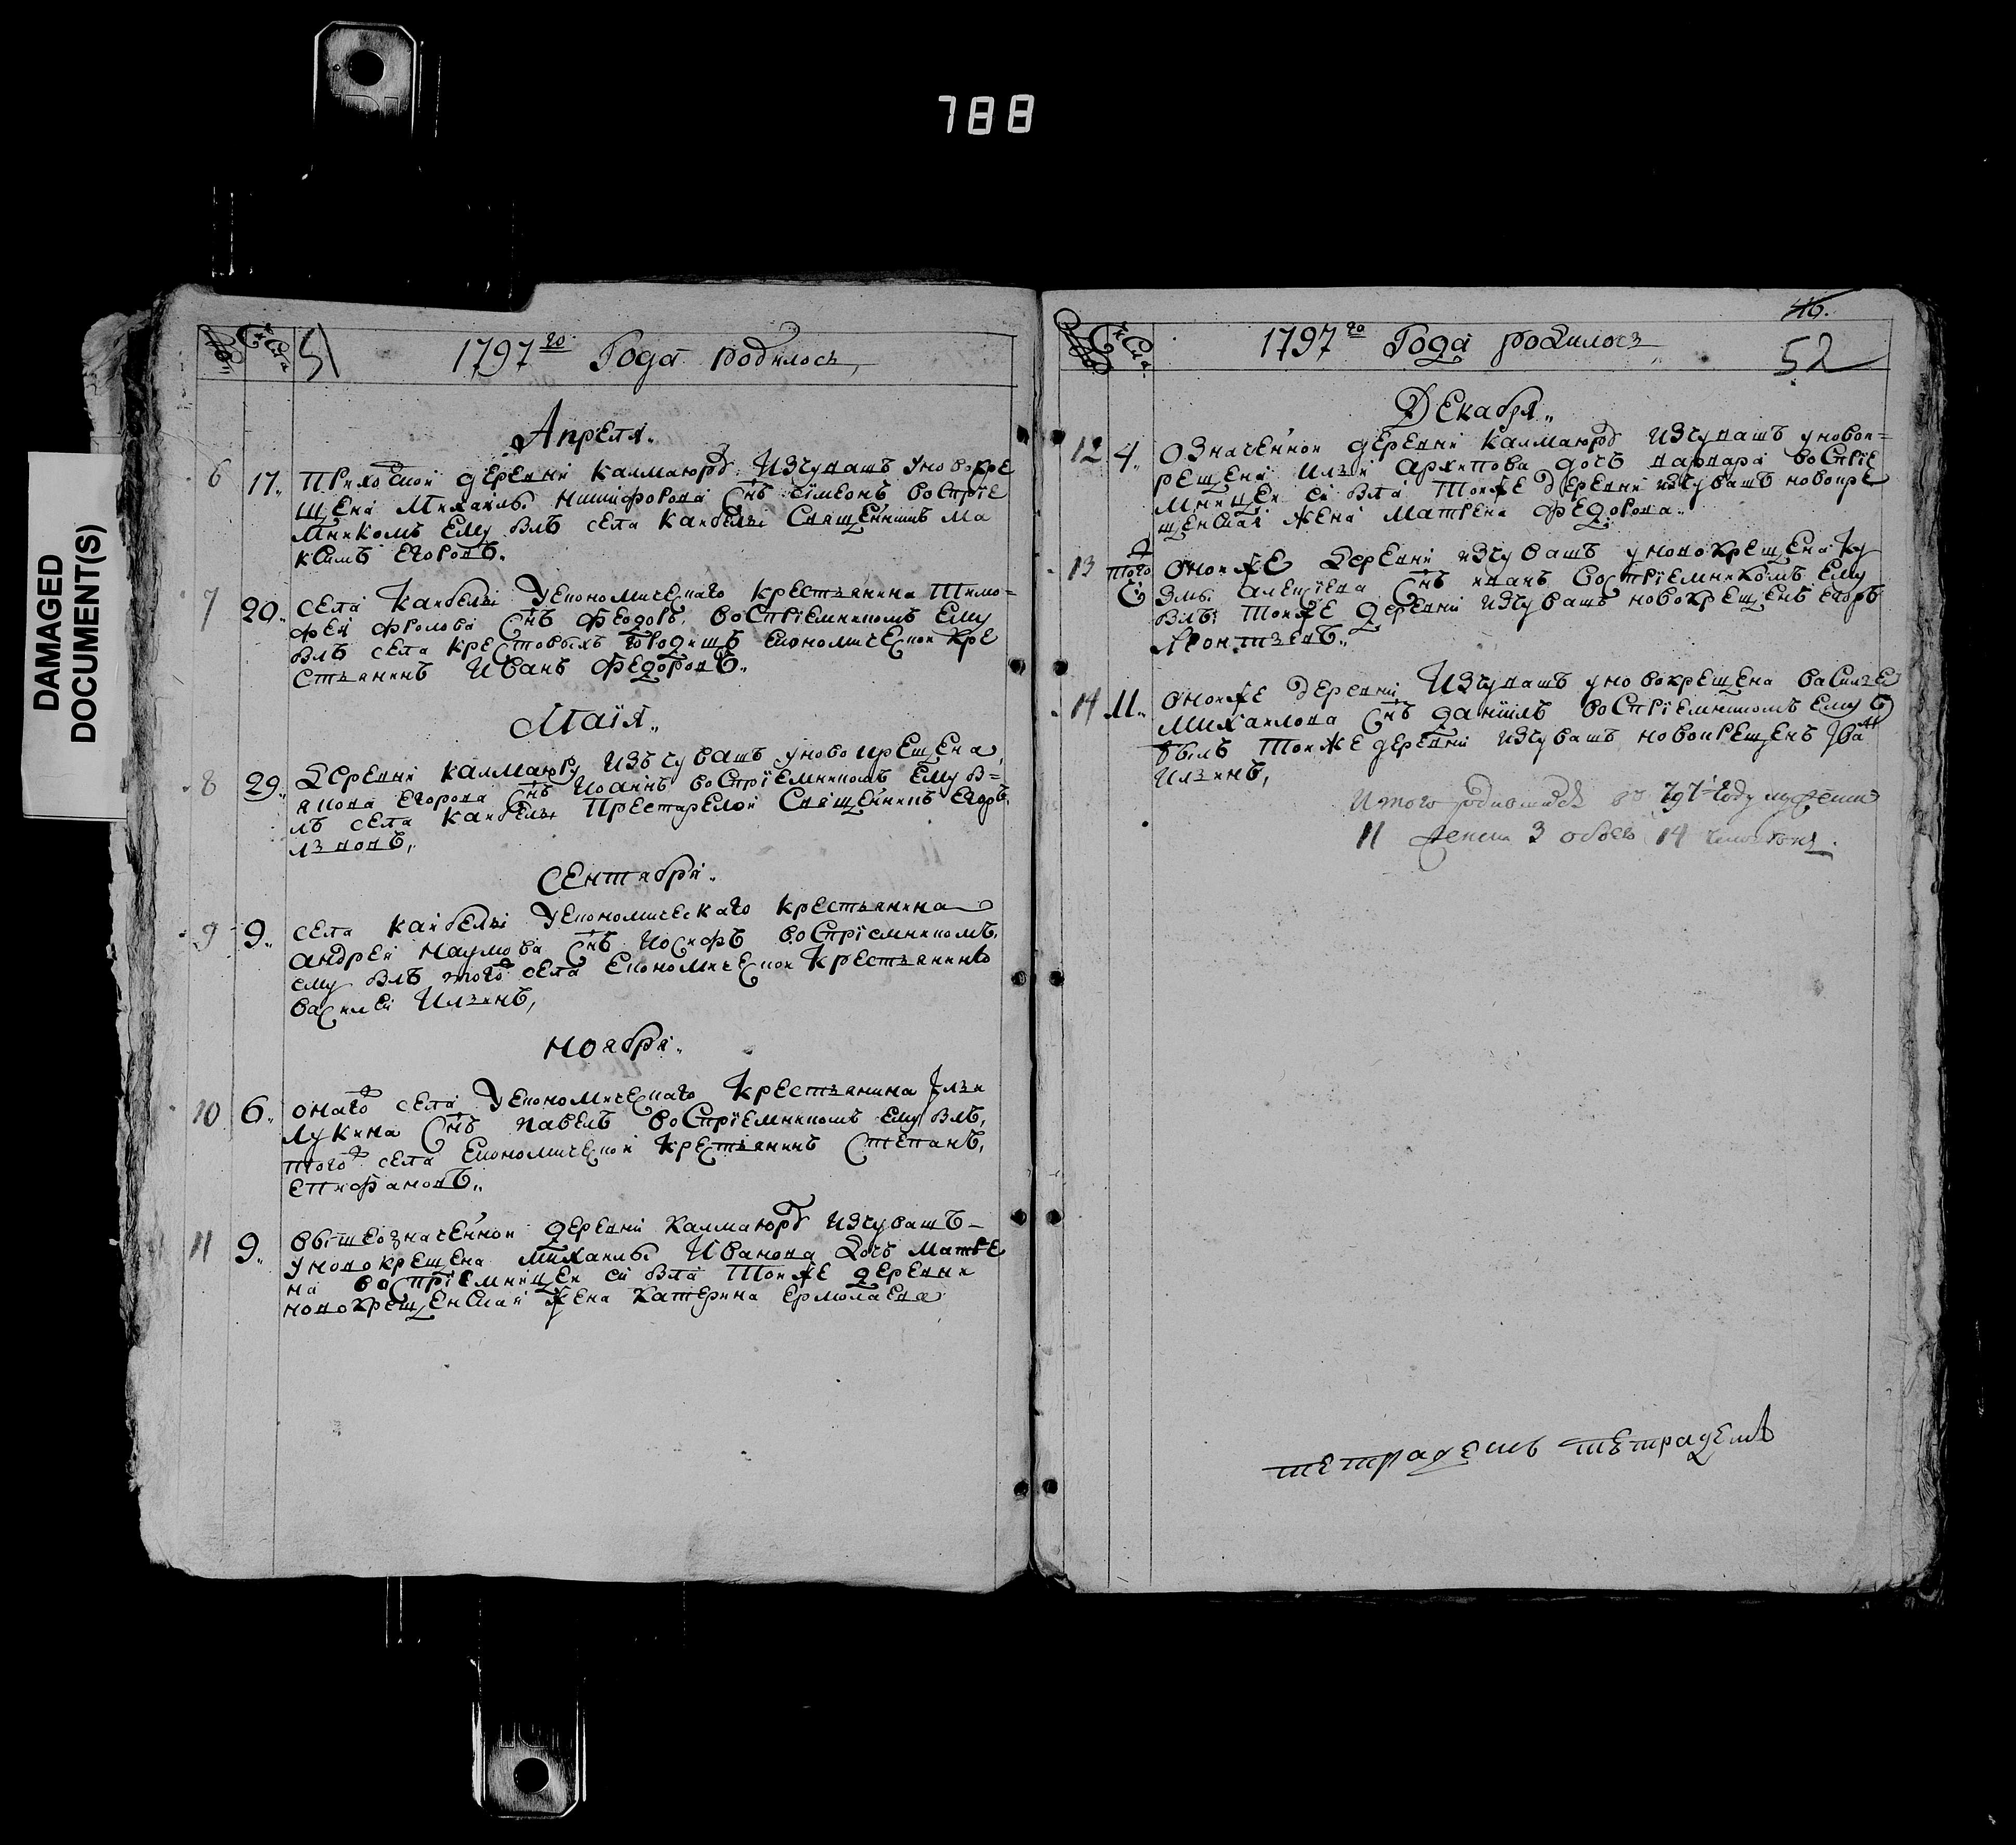 788
DAMAGED
DOCUMENT(S)
51
1797го Года родилось,
Апреля.
6 17. Приходской деревни Калмаюръ Изчувашъ уновокре
щена Михаила Никифорова Снъ Сімеонъ воспріе
мникомъ Ему Былъ села Каибелы Священникъ Ма
ксимъ Егоровъ.
7 20. села Каибелы Уекономическаго крестьянина Тимо=
фея Фролова Снъ Феодоръ, воспріемникомъ Ему
Былъ села крестовыхъ городищъ економической кре
стьянинъ Иванъ Федоровъ.
Маія.
8 29. Деревни калмаюру Изъчувашъ уновокрещена,
якова Егорова Снъ Иоаннъ воспріемникомъ Ему в=
лъ села каибелы Престарелой Священникъ Егоръ
лвовъ,
Сентября.
9 9. села каибелы Уекономическаго крестьянина
андрея Наумова Снъ Иосифъ воспріемникомъ
ему влъ того села Економической крестьянинъ
василей Ильинъ,
Ноября.
10 6. онаго села Уекономическаго крестьянина Ильи
Лукина Снъ павелъ воспріемникомъ ему влъ,
того села Економической крестьянинъ Степанъ,
епифановъ.
11 9. вышеозначенной деревни калмаюръ Изчувашъ-
уновокрещена Михаилы Иванова дочь матре
на воспріемницеи еи вла Тоиже деревни
новокрещенская жена катерина ермолаева
46.
52
1797го Года родилось
Декабря.
12 4. Означенной деревни калмаюръ Изчувашъ уновок=
рещена Ильи Архипова дочь варвара воспріе
мницеи еи вла Тоиже деревни изчувашъ новокре
щенская жена Матрена Федорова.
13 того Ч. оноиже деревни изчувашъ уновокрещена ку
змы Алексіева Снъ иванъ воспріемникомъ Ему
влъ Тоиже деревни Изчувашъ новокрещенъ егоръ
Леонтьевъ.
14 11. оноиже деревни Изчувашъ уновокрещена василье
Михаилова Снъ даніилъ воспріемникомъ Ему
былъ тоиже деревни изчувашъ новокрещенъ Іванъ
Ильинъ,
Итого родившихся въ 797 Году мужеска
11 женска 3 обоего 14 человекъ.
тетрадемъ тетрадемъ